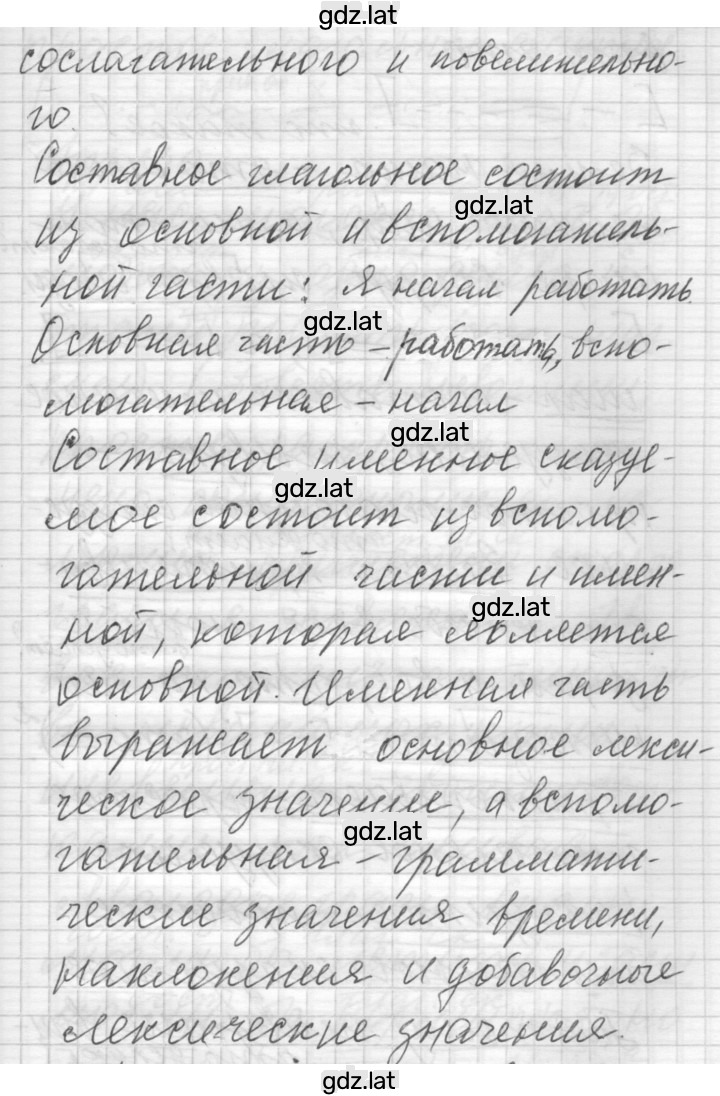 gdz.lat
сослагательного и повелительно-
го.
Составное глагольное состоит
gdz.lat
из основной и вспомогатель-
ной части: я начал работать.
gdz.lat
Основная часть – работать, вспо-
могательная – начал
gdz.lat
Составное именное сказуе-
gdz.lat
мое состоит из вспомо-
гательной части и имен-
gdz.lat
ной, которая является
основной. Именная часть
выражает основное лекси-
ческое значение, а вспомо-
gdz.lat
гательная – граммати-
ческие значения времени,
наклонения и добавочные
лексические значения.
gdz.lat